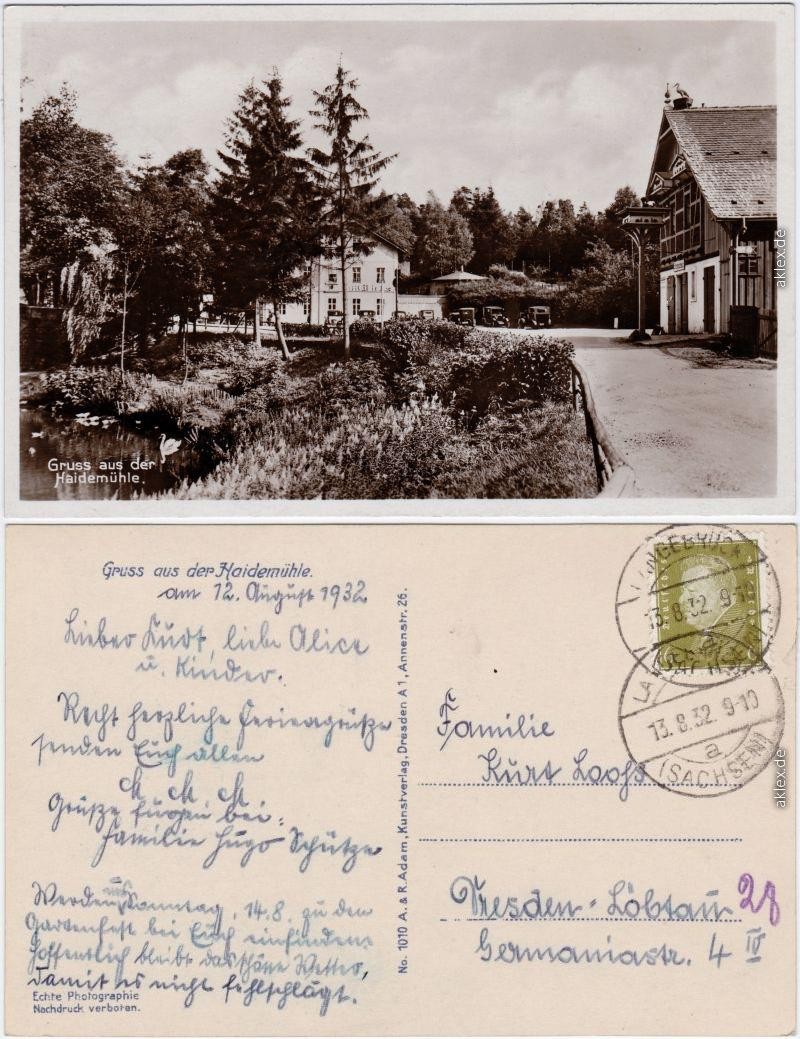 Gruss aus der
Haidemühle.
aklex.de
Gruss aus der Haidemühle.
am 12. August 1932
Lieber Kurt, liebe Alice
u. Kinder.
Recht herzliche Feriengrüße
senden Euch allen
M. M. M.
Grüße fügen bei:
Familie Hugo Schütze
Werden uns Sonntag, 14.8. zu dem
Gartenfest bei Euch einfinden.
Hoffentlich bleibt das schöne Wetter,
damit es nicht fehlschlägt.
Echte Photographie
Nachdruck verboten.
No. 1010 A. & R. Adam, Kunstverlag, Dresden A 1, Annenstr. 26.
LANGEBRÜCK
13.8.32. 9-10
a
13.8.32. 9-10
a
(SACHSEN)
Familie
Kurt Loohs
Dresden-Löbtau 28
Germaniastr. 4 IV
aklex.de